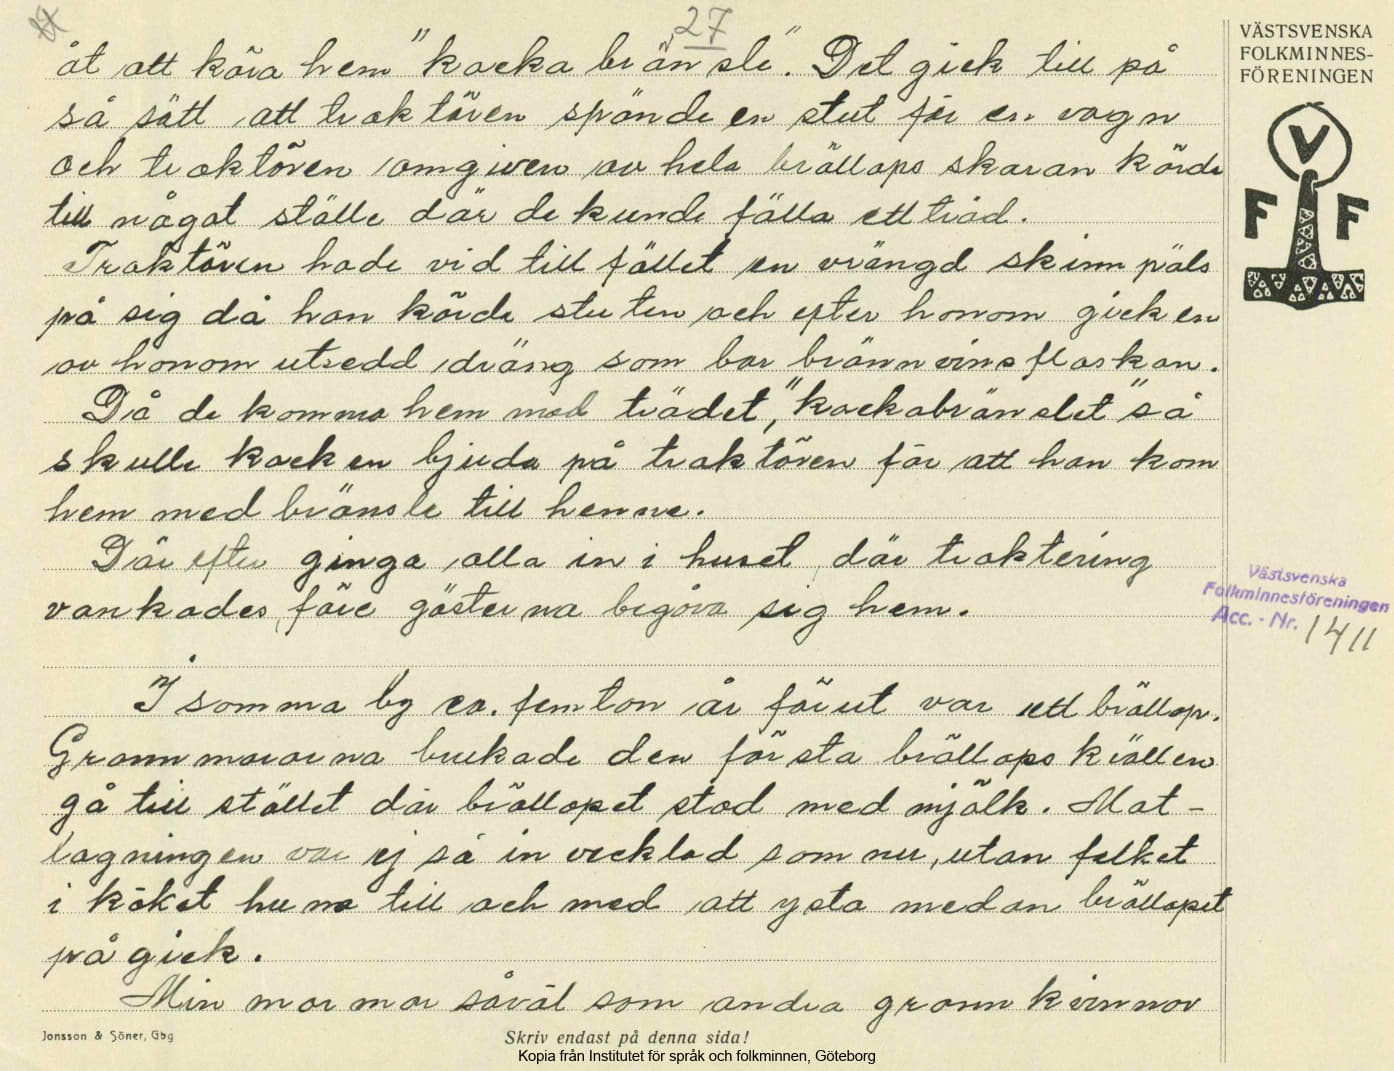 27
åt att köra hem "kocka bränsle". Det gick till på
så sätt att traktören spände en stut för en vagn
och traktören omgiven av hela bröllops skaran körde
till något ställe där de kunde fälla ett träd.
Traktören hade vid till fället en vrängd skinn päls
på sig då han körde stuten och efter honom gick en
av honom utsedd dräng som bar brännvinsflaskan.
Då de komma hem med trädet, "kockabränslet" så
skulle kocken bjuda på traktören för att han kom
hem med bränsle till henne.
Där efter ginga alla in i huset, där traktering
vankades, före gästerna begåva sig hem.
I samma by ca. femton år förut var ett bröllop.
Grannmororna brukade den första bröllops kvällen
gå till stället där bröllopet stod med mjölk. Mat-
lagningen var ej så in vecklad som nu, utan folket
i köket hunno till och med att ysta medan bröllopet
på gick.
Min mormor såväl som andra grannkvinnor
VÄSTSVENSKA
FOLKMINNES-
FÖRENINGEN
V
F F
Västsvenska
Folkminnesföreningen
Acc. - Nr. 1411
Jonsson & Söner, Gbg
Skriv endast på denna sida!
Kopia från Institutet för språk och folkminnen, Göteborg